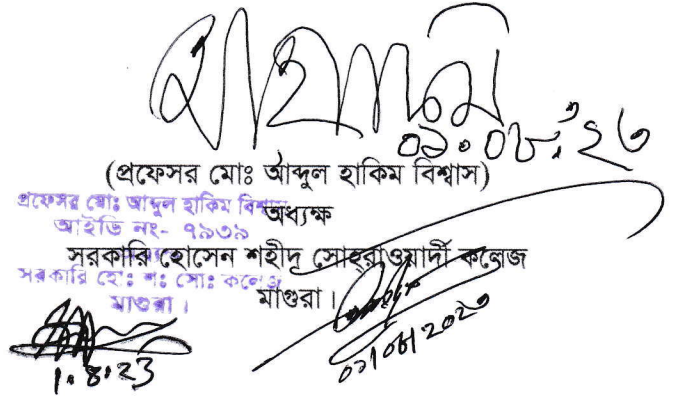 ০১.০৮.২৩
(প্রফেসর মোঃ আব্দুল হাকিম বিশ্বাস)
অধ্যক্ষ
সরকারি হোসেন শহীদ সোহ্‌রাওয়ার্দী কলেজ
মাগুরা।
প্রফেসর মোঃ আব্দুল হাকিম বিশ্বাস
আইডি নং- ৭৯৩৯
সরকারি হোঃ শঃ সোঃ কলেজ
মাগুরা।
1.8.23
০১/০৮/২০২৩